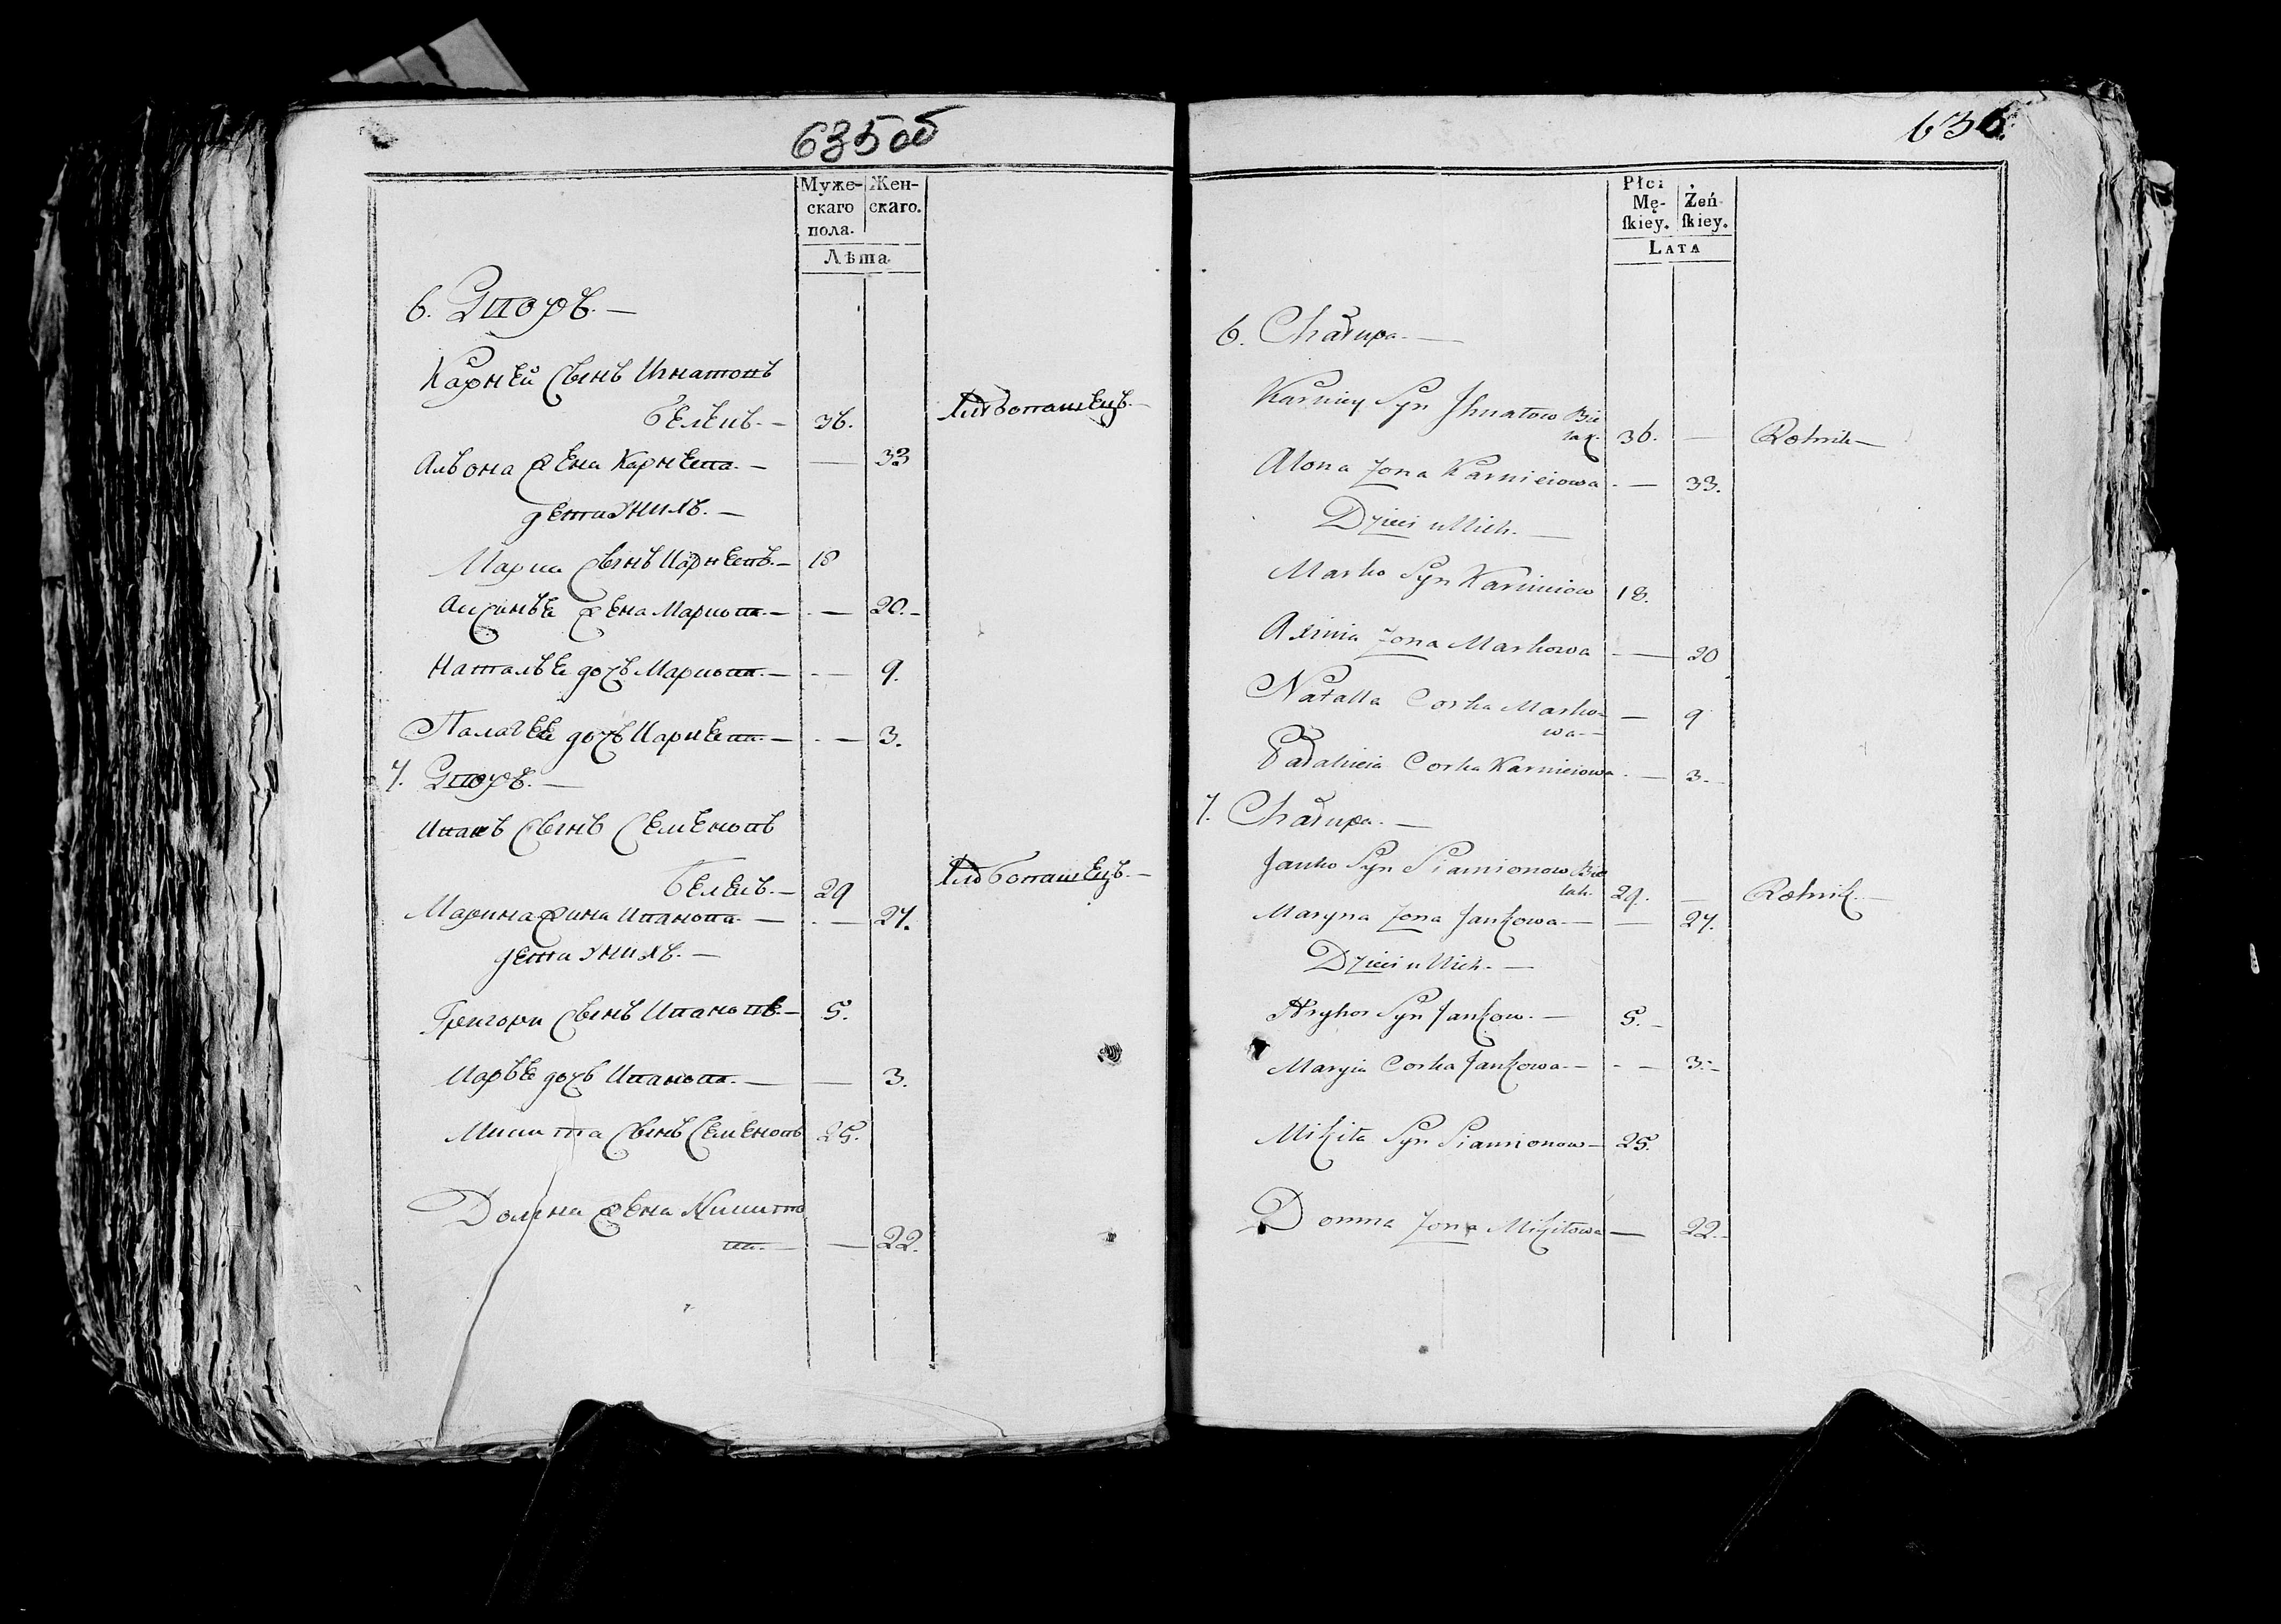 635об
Муже-
скаго
пола.
Жен-
скаго.
Лѣта
6. Дворъ. —
Карнѣй Сынъ Игнатовъ
Белѣкъ. — 36. Хлѣбопашецъ. —
Алѣона Жена Карнѣева. — — 33
дети у нихъ. —
Марко Сынъ Карнѣевъ. — 18
Аксинья Жена Маркова. — — 20. —
Наталья дочь Маркова. — — 9.
Палагея дочь Карнѣева. — — 3.
7. Дворъ. —
Иванъ Сынъ Семеновъ
Белекъ. — 29 Хлѣбопашецъ. —
Марина Жина Иванова. — — 27.
дети у нихъ. —
Григори Сынъ Ивановъ. — 5.
Марья дочь Иванова. — — 3.
Микита Сынъ Семеновъ 25.
Домна Жена Микито
ва. — — 22.
636.
Płci
Mę-
ſkiey.
Żeń-
ſkiey.
LATA
6. Chałupa. —
Karniey Syn Jhnatow Bie
lak. 36. — Rolnik —
Alona Zona Karnieiowa. — 33.
Dzieci u Nich. —
Marko Syn Karnieiow 18.
Axinia Zona Markowa — 20
Natalla Corka Marko- — 9
wa. —
Pałahieia Corka Karnieiowa. — 3. —
7. Chałupa. —
Janko Syn Siamionow Bie
lak. 29. — Rolnik. —
Maryna Zona Jankowa. — — 27.
Dzieci u Nich. —
Hryhor Syn Jankow. — 5. —
Maryia Corka Jankowa. — — 3. —
Mikita Syn Siamionow — 25.
Domna Zona Mikitowa — 22. —